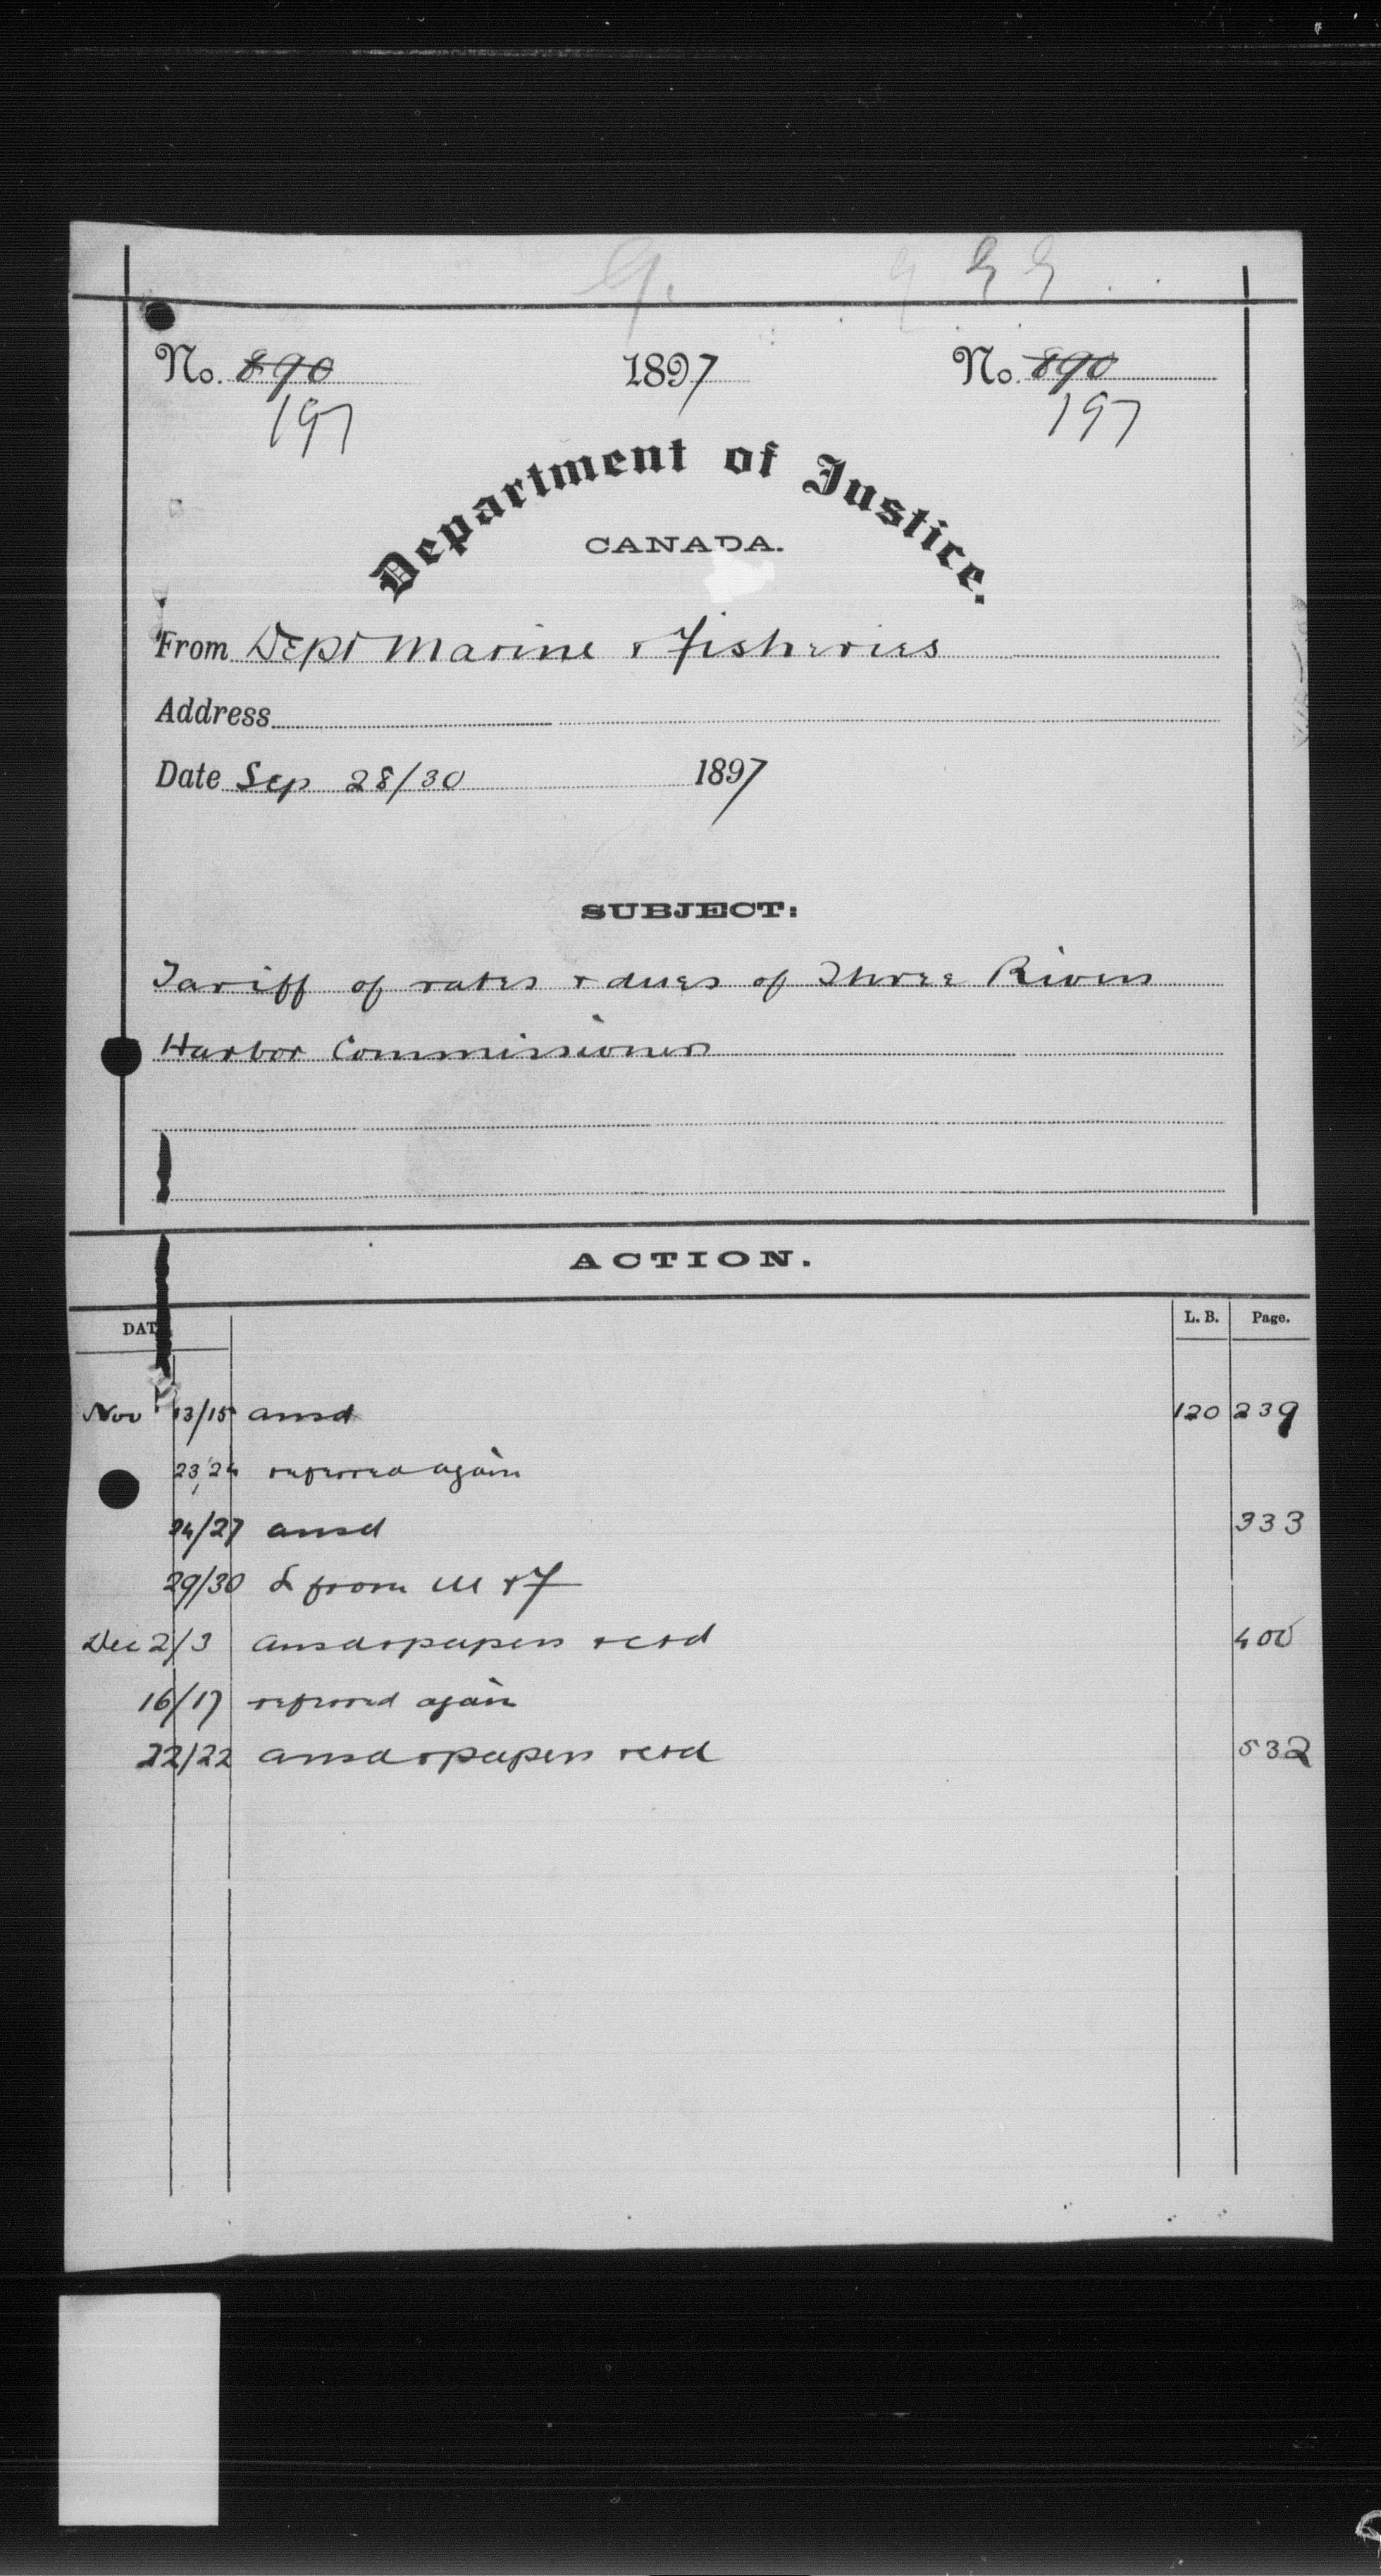 No. 890 1897 No. 890
197 197
Department of Justice.
CANADA.
From Dept Marine & Fisheries
Address
Date Sep 28/30 1897
SUBJECT:
Tariff of rates & dues of Three Rivers
Harbor Commissioners
ACTION.
DAT L. B. Page.
Nov 13/15 ansd 120 239
23/24 referred again
24/27 ansd 333
29/30 L from M & F
Dec 2/3 ansd & papers retd 400
16/17 referred again
22/22 ansd & papers retd 532